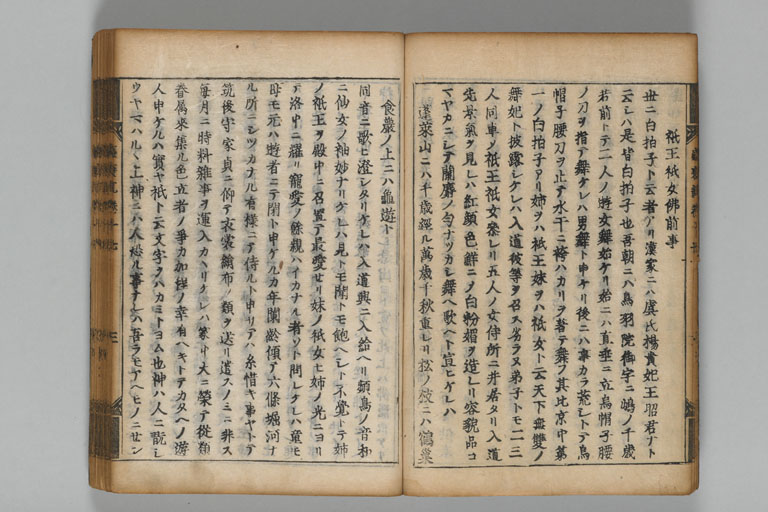 祇王祇女佛前事
世ニ白拍子ト云者アリ漢家ニハ虞氏楊貴妃王昭君ナト
云シハ是皆白拍子也吾朝ニハ鳥羽院御宇ニ嶋ノ千歳
若前トテ二人ノ遊女舞始ケリ始ニハ直垂ニ立烏帽子腰
ノ刀ヲ指テ舞ケレハ男舞ト申ケリ後ニハ事カラ荒シトテ烏
帽子腰刀ヲ止テ水干ニ袴ハカリヲ著テ舞フ其比京中第
一ノ白拍子アリ姉ヲハ祇王妹ヲハ祇女ト云天下無雙ノ
舞妃ト披露シケレハ入道彼等ヲ召ス劣ラヌ弟子トモ二三
人同車ノ祇王祇女参レリ五人ノ女侍所ニ井居タリ入道
先景氣ヲ見レハ紅顔色鮮ニノ白粉媚ヲ造レリ容貌品コ
マヤカニシテ蘭麝ノ匂ナツカシ舞ヘ歌ヘト宣ヒケレハ
蓬莱山ニハ千歳經ル萬歳千秋重レリ松ノ枝ニハ鶴巣
食巖ノ上ニハ龜遊ト
同音ニ歌ヒ澄シタリケレハ入道興ニ入給ヘリ頻鳥ノ音和
ニ仙女ノ袖妙ナリケレハ見トモ聞トモ飽ヘシト不覺トテ姉
ノ祇王ヲ殿中ニ召置テ最愛セリ妹ノ祇女ヒ姉ノ光ニヨリ
テ洛中ニ耀リ寵愛ノ餘親ハイカナル者ソト問レケレハ童モ
母モ元ハ遊者ニテ聞ト申ケルカ年闌齢傾テ六條堀河ナ
ル所ニシツカナル有様ニテ侍ルト申リアハ糸惜キ事ヤトテ
筑後守家貞ニ仰テ衣裳絹布ノ類ヲ送リ遣スノミニ非ス
毎月ニ時料雑事ヲ運入カハリケレハ家中大ニ榮テ從類
眷属来集ル色立者ノ爭カ加様ノ幸有ヘキトアカタヘノ遊
人申ケルハ實ヤ祇ト云文字ヲハカミトヨム也神ハ人ニ翫シ
ウヤマハルヽ上神ニハ人恐ル事ナレハ吾ラモアヘモノニセン